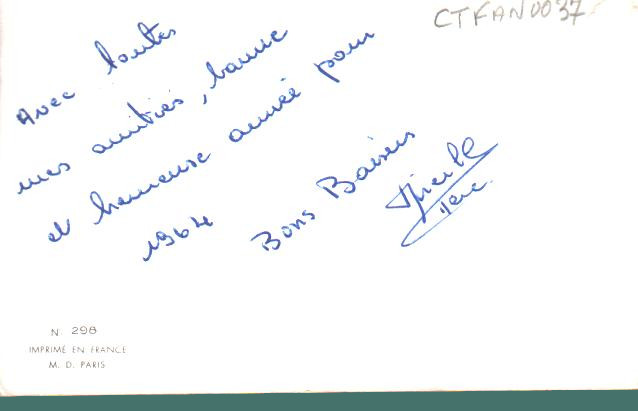 CTFAN0037
Avec toutes
mes amitiés, bonne
et heureuse année pour
1964
Bons Baisers
N. 298
IMPRIMÉ EN FRANCE
M. D. PARIS